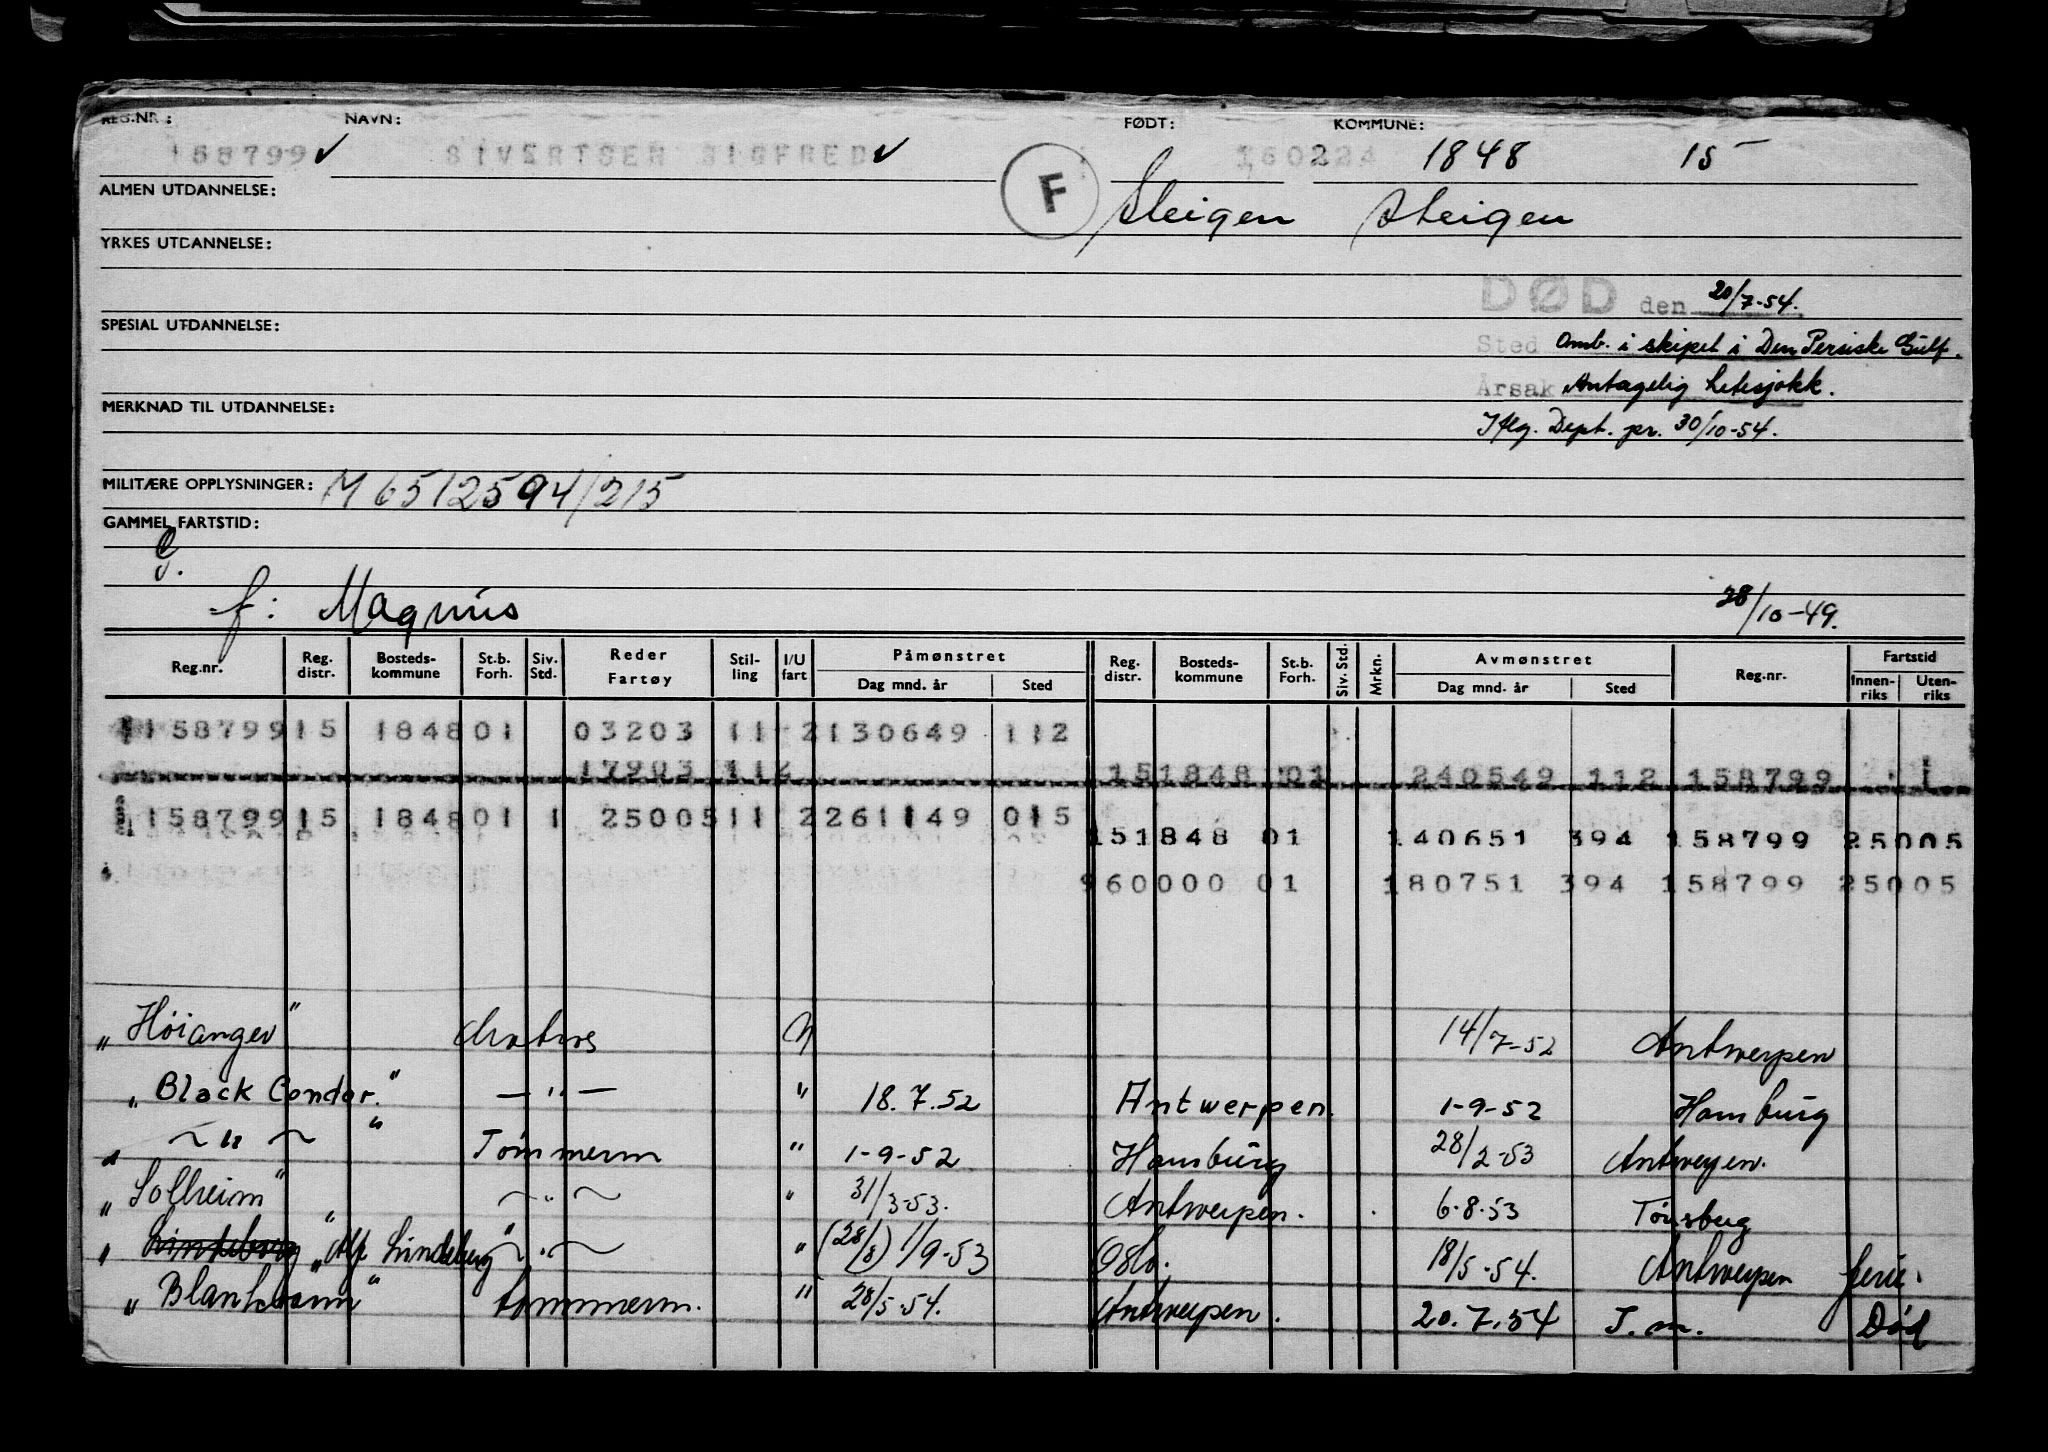 REG.NR: NAVN: FØDT: KOMMUNE:
158799 SIVERTSEN SIGFRED 160224 1848 15
ALMEN UTDANNELSE: F Steigen Steigen
YRKES UTDANNELSE:
DØD den 20/7-54.
SPESIAL UTDANNELSE:
Sted Omb. i skipet i Den Persiske Gulf.
Årsak Antagelig hetesjokk.
MERKNAD TIL UTDANNELSE:
Iflg. Dept. pr. 30/10-54.
MILITÆRE OPPLYSNINGER: M 6512594/215
GAMMEL FARTSTID:
f: Magnus 28/10-49.
Reg.nr. Reg. distr. Bosteds-kommune St.b. Forh. Siv. Std. Reder Fartøy Stil-ling I/U fart Påmønstret Dag mnd. år Sted Reg. distr. Bosteds-kommune St.b. Forh. Siv. Std. Mrkn. Avmønstret Dag mnd. år Sted Reg.nr. Fartstid Innen-riks Uten-riks
158799 15 1848 01 03203 11 2 130649 112
17903 112 151848 01 240549 112 158799 1
158799 15 1848 01 1 25005 11 2 261149 015
151848 01 140651 394 158799 25005
960000 01 180751 394 158799 25005
"Höianger" Matros U 14/7-52 Antwerpen
"Black Condor." — " — " 18.7.52 Antwerpen. 1-9-52 Hamburg
" ~ " ~ " Tømmerm " 1-9-52 Hamburg 28/2-53 Antwerpen.
"Solheim" ~ " ~ " 31/3-53. Antwerpen. 6-8-53 Tönsberg
" Lindeborg "Alf Lindeberg" ~ " ~ " (28/8) 1/9-53 Oslo. 18/5-54. Antwerpen ferie.
"Blankvann" tømmerm. " 28/5-54. Antwerpen. 20.7.54 T.m. Død